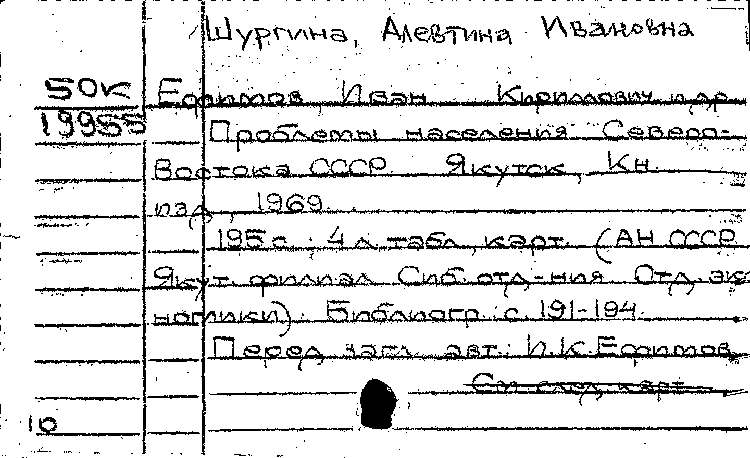 Шургина, Алевтина Ивановна
50к Ефимов Иван Кириллович и др.
19955 Проблемы населения Северо-
Востока СССР Якутск, Кн.
изд., 1969.
195 с.; 4 л. табл., карт. (АН СССР
Якут. филиал Сиб. отд-ния Отд. эко
номики) Библиогр.: с. 191-194.
Перед загл. авт.: И.К. Ефимов
См. след. карт.
10